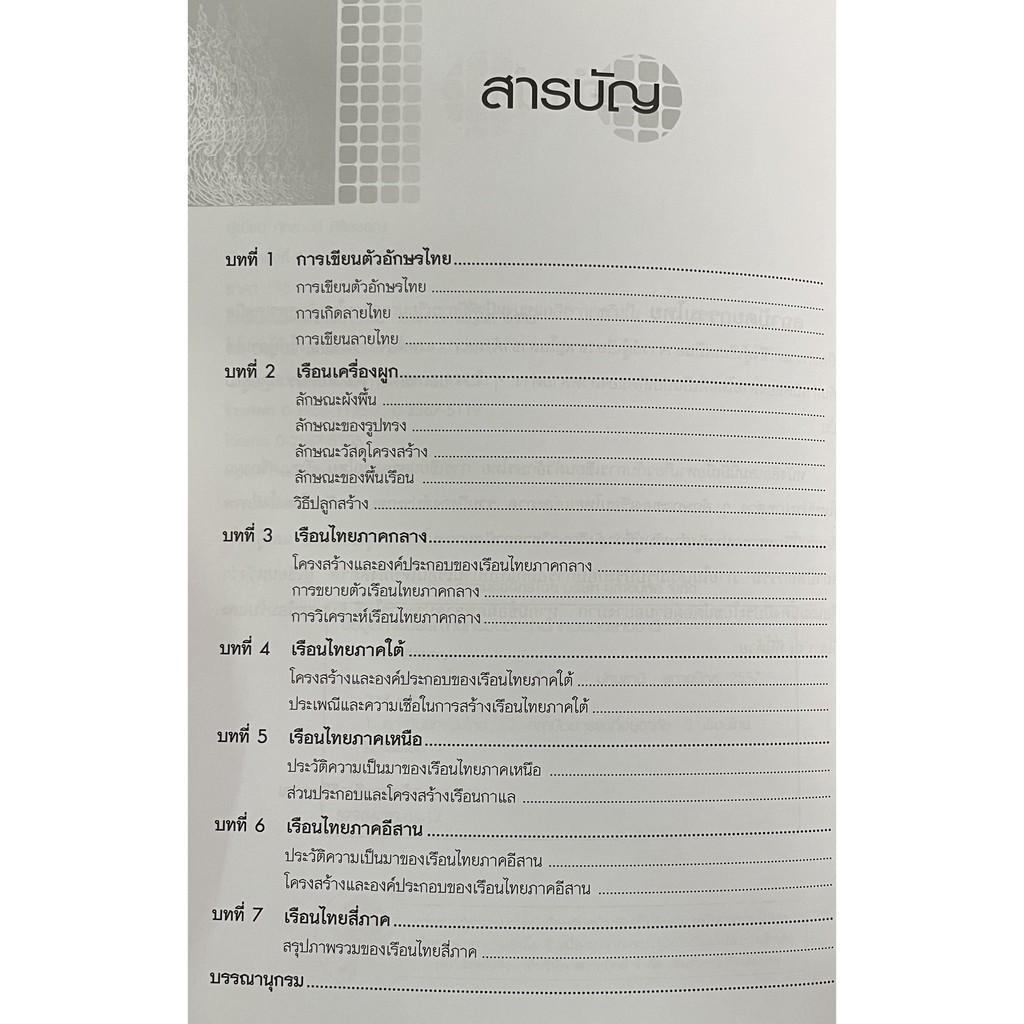 สารบัญ
บทที่ 1 การเขียนตัวอักษรไทย
การเขียนตัวอักษรไทย
การเกิดลายไทย
การเขียนลายไทย
บทที่ 2 เรือนเครื่องผูก
ลักษณะผังพื้น
ลักษณะของรูปทรง
ลักษณะวัสดุโครงสร้าง
ลักษณะของพื้นเรือน
วิธีปลูกสร้าง
บทที่ 3 เรือนไทยภาคกลาง
โครงสร้างและองค์ประกอบของเรือนไทยภาคกลาง
การขยายตัวเรือนไทยภาคกลาง
การวิเคราะห์เรือนไทยภาคกลาง
บทที่ 4 เรือนไทยภาคใต้
โครงสร้างและองค์ประกอบของเรือนไทยภาคใต้
ประเพณีและความเชื่อในการสร้างเรือนไทยภาคใต้
บทที่ 5 เรือนไทยภาคเหนือ
ประวัติความเป็นมาของเรือนไทยภาคเหนือ
ส่วนประกอบและโครงสร้างเรือนกาแล
บทที่ 6 เรือนไทยภาคอีสาน
ประวัติความเป็นมาของเรือนไทยภาคอีสาน
โครงสร้างและองค์ประกอบของเรือนไทยภาคอีสาน
บทที่ 7 เรือนไทยสี่ภาค
สรุปภาพรวมของเรือนไทยสี่ภาค
บรรณานุกรม